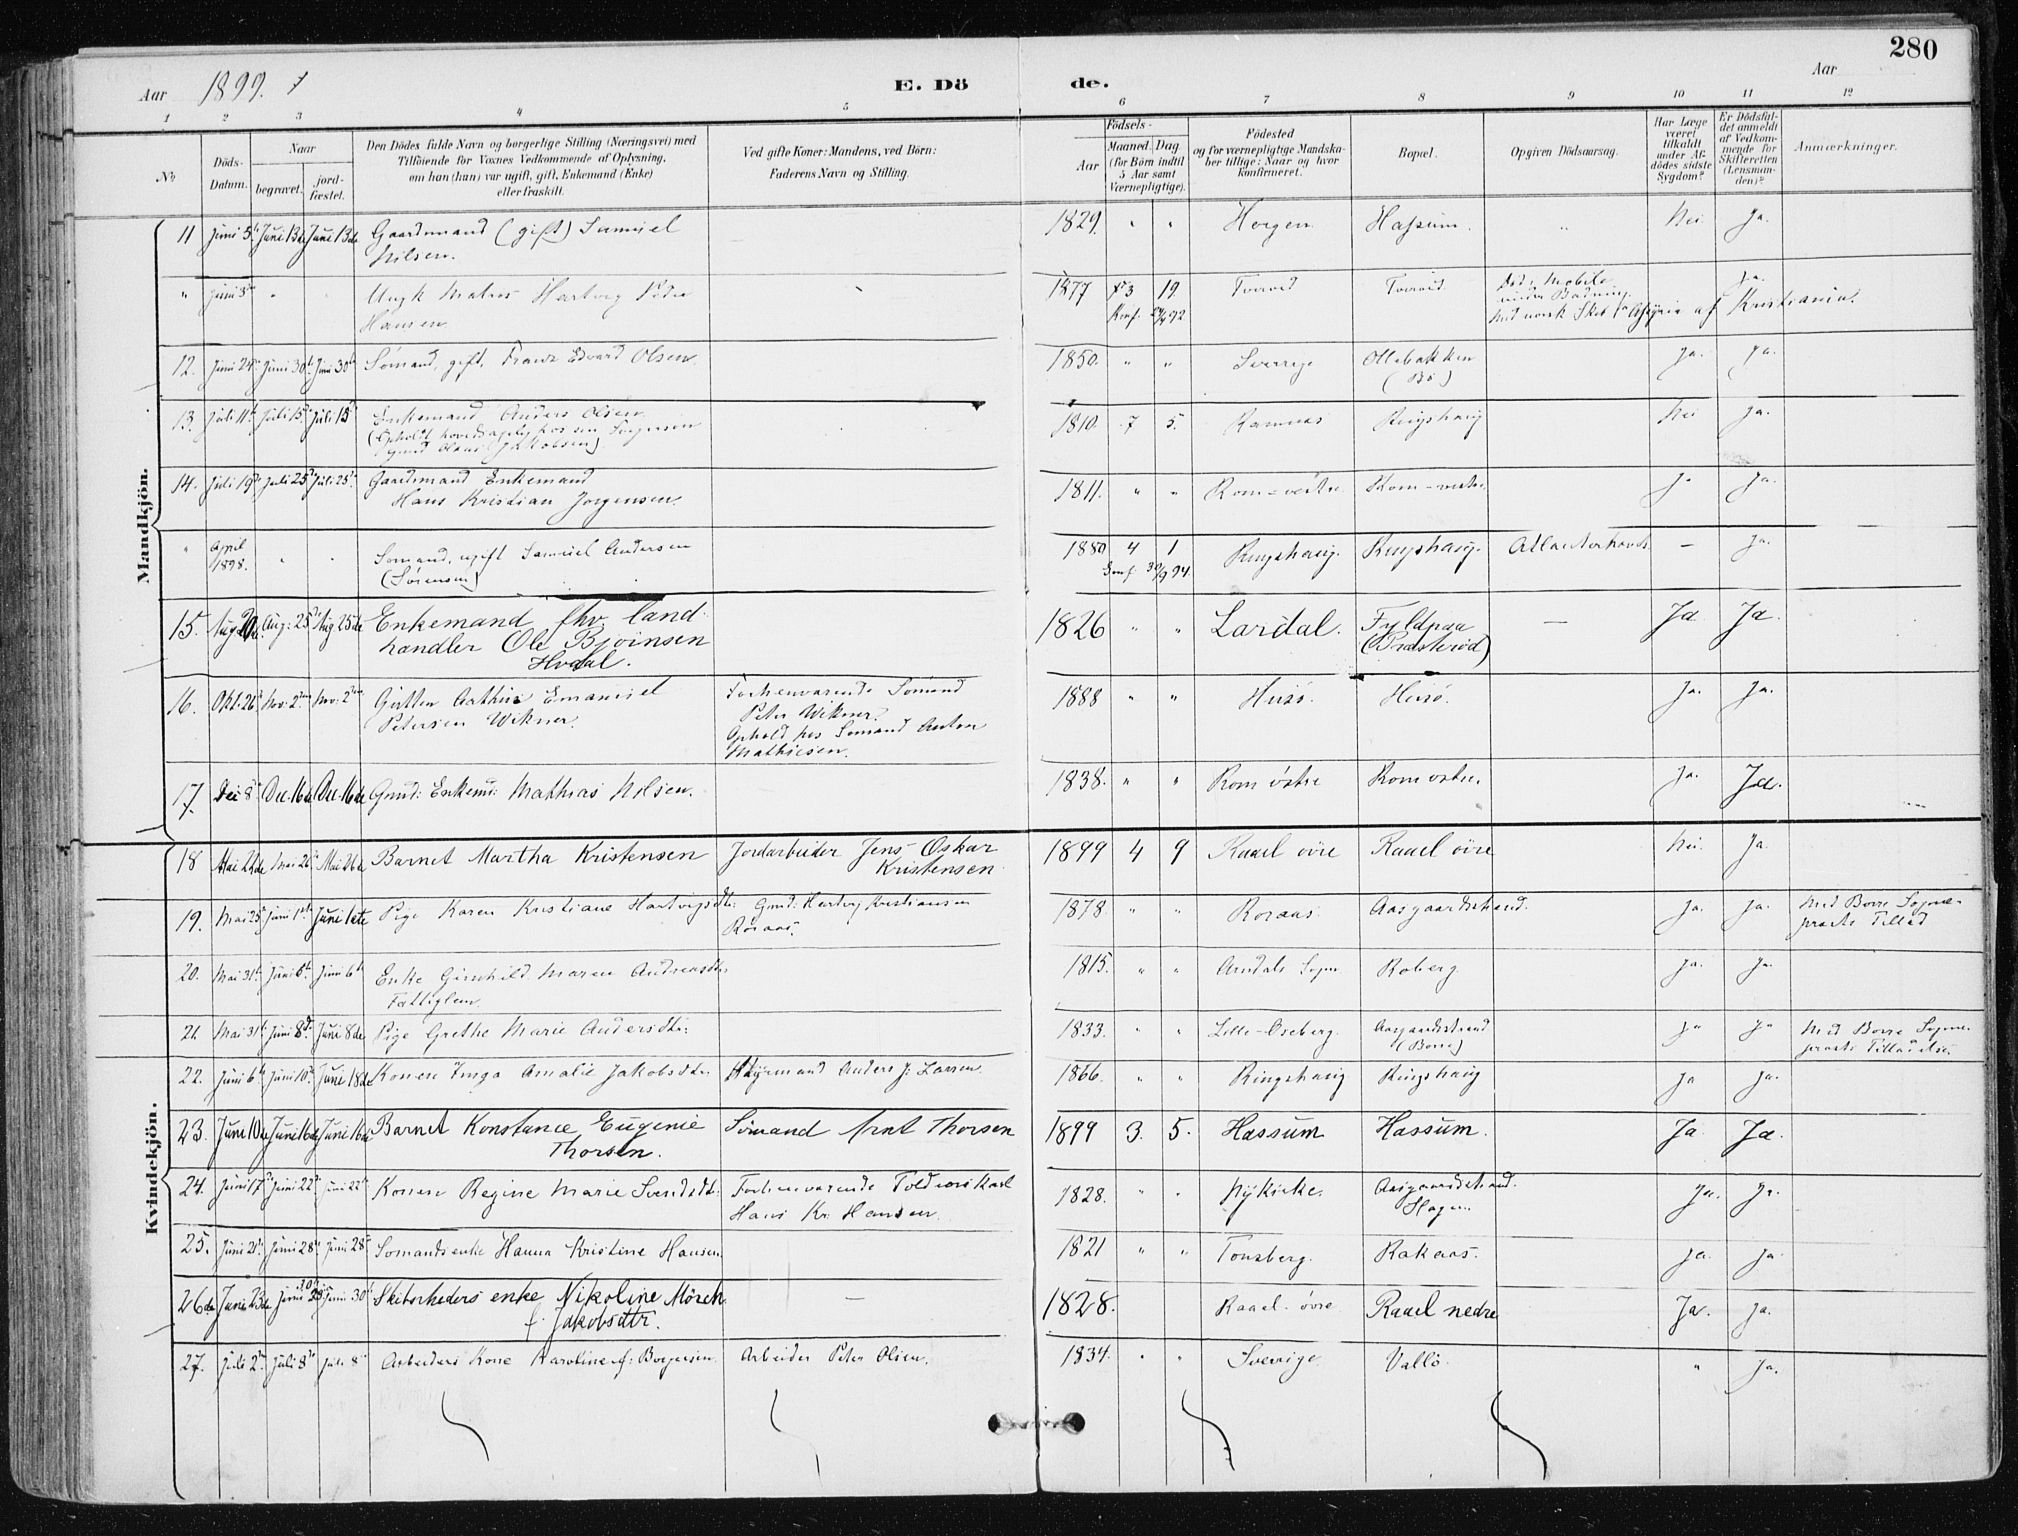 280
Aar 1899.
E. Döde.
Aar
1 2 3 4 5 6 7 8 9 10 11 12
No.
Döds-Datum.
Naar
begravet.
jordfæstet.
Den Dödes fulde Navn og borgerlige Stilling (Næringsvei) med
Tilföiende for Voxnes Vedkommende af Oplysning,
om han (hun) var ugift, gift, Enkemand (Enke)
eller fraskilt.
Ved gifte Koner: Mandens, ved Börn:
Faderens Navn og Stilling.
Födsels-
Aar
Maaned. Dag
(for Börn indtil
5 Aar samt
Værnepligtige).
Födested
og for værnepligtige Mandska-
ber tillige: Naar og hvor
konfirmeret.
Bopæl.
Opgiven Dödsaarsag.
Har Læge
været
tilkaldt
under Af-
dödes sidste
Sygdom?
Er Dödsfal-
det anmeldt
af Vedkom-
mende for
Skifteretten
(Lensman-
den)?
Anmærkninger.
Mandkjön.
11 Juni 5te Juni 13de Juni 13de Gaardmand (gift) Samuel Nilsen. 1829. " " Horgen Hassum. " Nei Ja.
" Juni 3die " " Ungk. Matros Hartvig Peder Hansen 1877 19. Konf. Død i Mobile under Badning. Med norsk Skib af Kristiania. Ja.
12. Juni 24de Juni 30te Juni 30te Sømand, gift, Frans Edvard Olsen. 1850. " " Sverige Ollebakken (Bø) Ja. Ja.
13. Juli 11te Juli 15de Juli 15de Enkemand Anders Olsen 1810. 7 5. Ramnæs Ringshaug Nei Ja.
14. Juli 19de Juli 25de Juli 25de Gaardmand Enkemand
Hans Kristian Jørgensen. 1811. " " Rom-vestre. Rom-vestre. Ja Ja.
" April 1898. " " Sømand, ugift Samuel Andersen
(Sørensen) 1880 4 1 Konf. 30/9 94. Ringshaug. Ringshaug. Atlanterhavet. – Ja.
15. Aug 20de. Aug: 25de Aug 25de Enkemand fhv. land-
handler Ole Bjørnsen
Hvaal. 1826 " " Lardal. Fyldpaa (Præsterød) – Ja Ja.
16. Okt. 26de Nov. 2den Nov. 2den Gutten Arthur Emanuel
Petersen Wikner. Forhenværende Sømand
Peter Wikner.
Ophold hos Sømand Anton
Mathiesen. 1888 " " Husø. Husø. Ja. Ja.
17. Dec. 8de Dec. 16de Dec. 16de Gmd: Enkemd: Mathias Nilsen. 1838. " " Rom østre Rom østre. Ja. Ja.
Kvindekjön.
18 Mai 22de Mai 26de Mai 26de Barnet Martha Kristensen Jordarbeider Jens Oskar
Kristensen 1899 4 9 Raael øvre Raael øvre Nei. Ja.
19. Mai 25de Juni 1ste Juni 1ste Pige Karen Kristiane Hartvigsdtr: Gmd: Hartvig Kristiansen
Roraas. 1878. " " Roraas. Aasgaardstrand. Ja. Ja. Med Borre Sogne-
præsts Tillad
20. Mai 31te Juni 6te Juni 6te Enke Gunhild Maren Andreasdtr.
Fattiglem 1815. " " Arndals Sogn Roberg. Ja. Ja.
21. Mai 31te Juni 8de Juni 8de Pige Grethe Marie Andersdtr: 1833. " " Lille-Oseberg. Aasgaardstrand
(Borre) Ja Ja Med Borre Sogne-
præsts Tilladelse.
22. Juni 6te Juni 10de Juni 18de Konen Inga Amalie Jakobsdtr. Styrmand Anders J. Larsen 1866. " " Ringshaug Ringshaug Ja Ja.
23. Juni 10de Juni 16de Juni 16de Barnet Konstance Eugenie
Thorsen. Sømand Arnt Thorsen 1899 3. 5. Hassum Hassum. Ja. Ja.
24. Juni 17de Juni 22de Juni 22de Konen Regine Marie Svendsdtr: Forhenværende Toldrorskarl
Hans Kr. Hansen. 1828. " " Nykirke. Aasgaardstrand.
Skogen. Ja. Ja.
25. Juni 21de Juni 28de Juni 28de Sømandsenke Hanna Kristine Hansen. 1821 " " Tønsberg. Rakaas. Ja. Ja.
26de Juni 23de Juni 30te Juni 30te Skibsrheders enke Nikoline Mörch.
f. Jakobsdtr. – 1828. Raael øvre Raael nedre Ja. Ja.
27. Juli 2den Juli 8de Juli 8de Arbeiders Kone Karoline f: Borgersen. Arbeider Peter Olsen. 1834. " " Sverige. Vallø. " Ja.